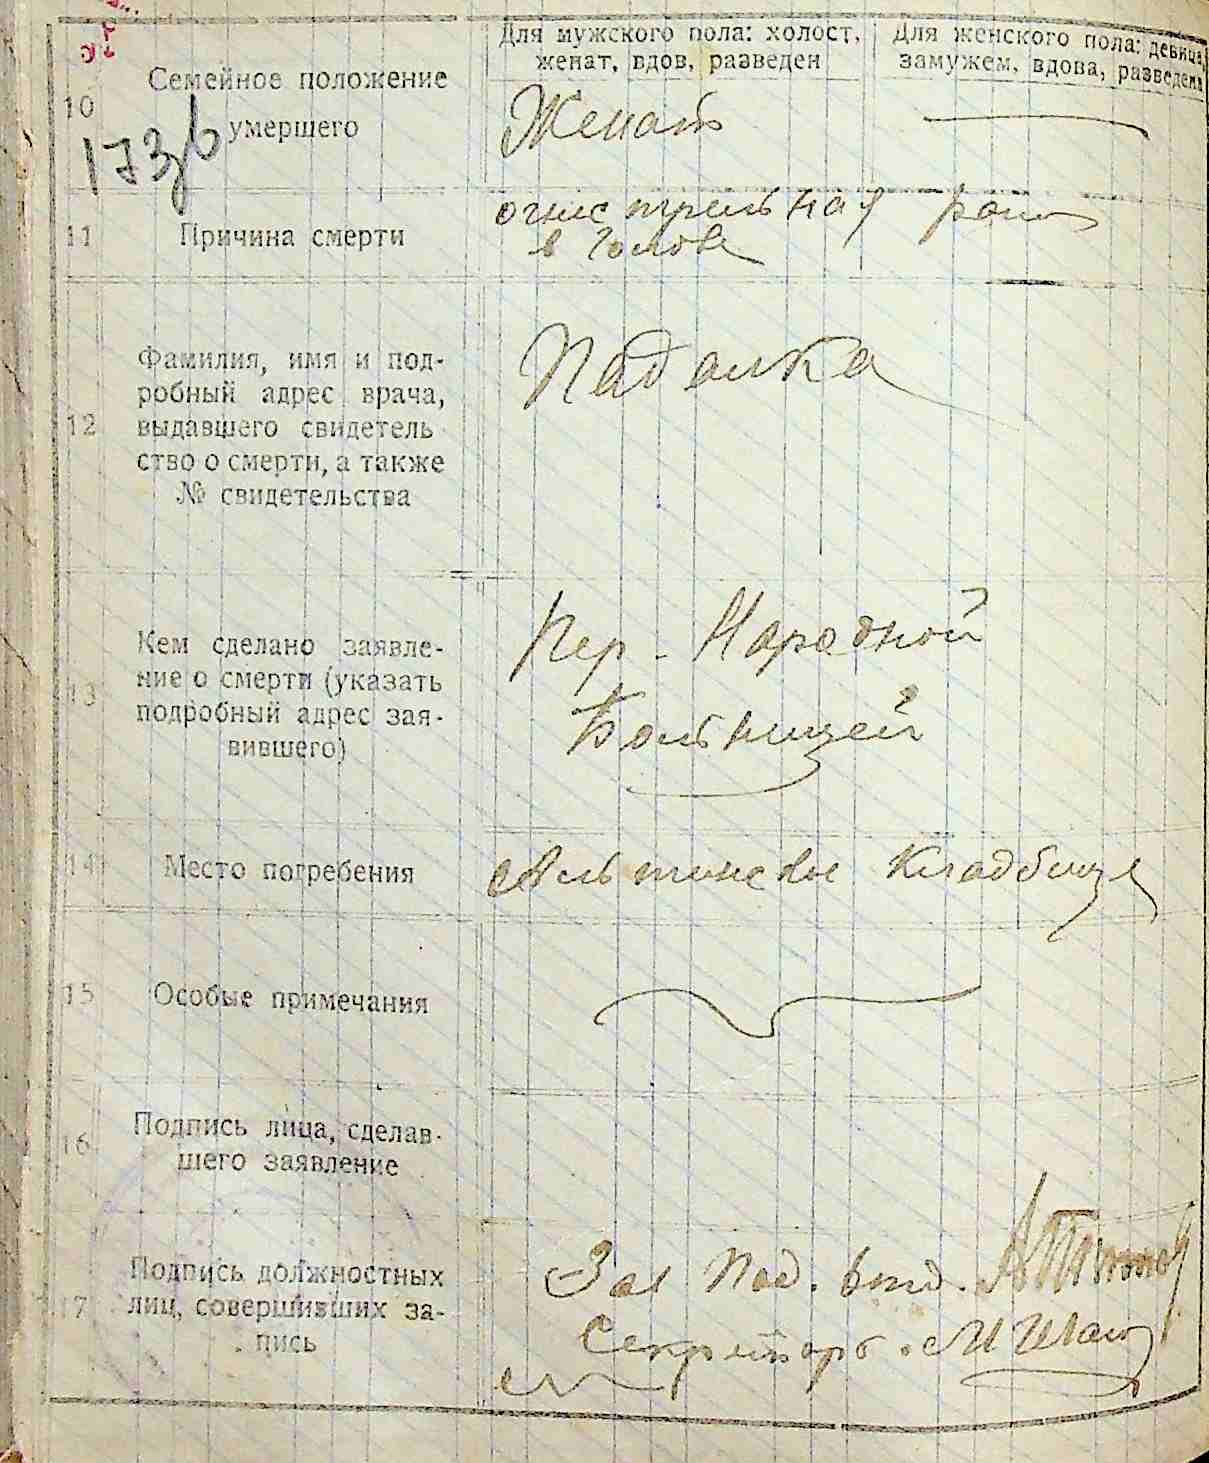 Для мужского пола: холост,
женат, вдов, разведен
Для женского пола: девица,
замужем, вдова, разведена
10
Семейное положение
умершего
Женат
173
11
Причина смерти
огнестрельная рана
в голове
12
Фамилия, имя и под-
робный адрес врача,
выдавшего свидетель
ство о смерти, а также
№ свидетельства
Падалка
13
Кем сделано заявле-
ние о смерти (указать
подробный адрес зая-
вившего)
Пер - Народной
Больницей
14
Место погребения
кладбище
15
Особые примечания
16
Подпись лица, сделав-
шего заявление
17
Подпись должностных
лиц, совершивших за-
пись
Зав Под. отд.
Секретарь